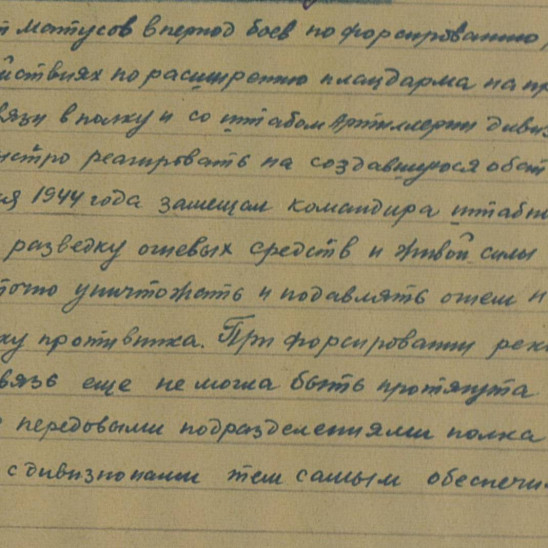 т Матусов в период боев по форсированию
йствиях по расширению плацдарма на пр
вязи в полку и со штабом Артиллерии дивиз
ыстро реагировать на создавшуюся обст
ня 1944 года замещал командира штабн
разведку огневых средств и живой силы
точно уничтожать и подавлять огнем н
ку противника. При форсировании реки
вязь еще не могла быть протянута
передовыми подразделениями полка
с дивизионами тем самым обеспечи